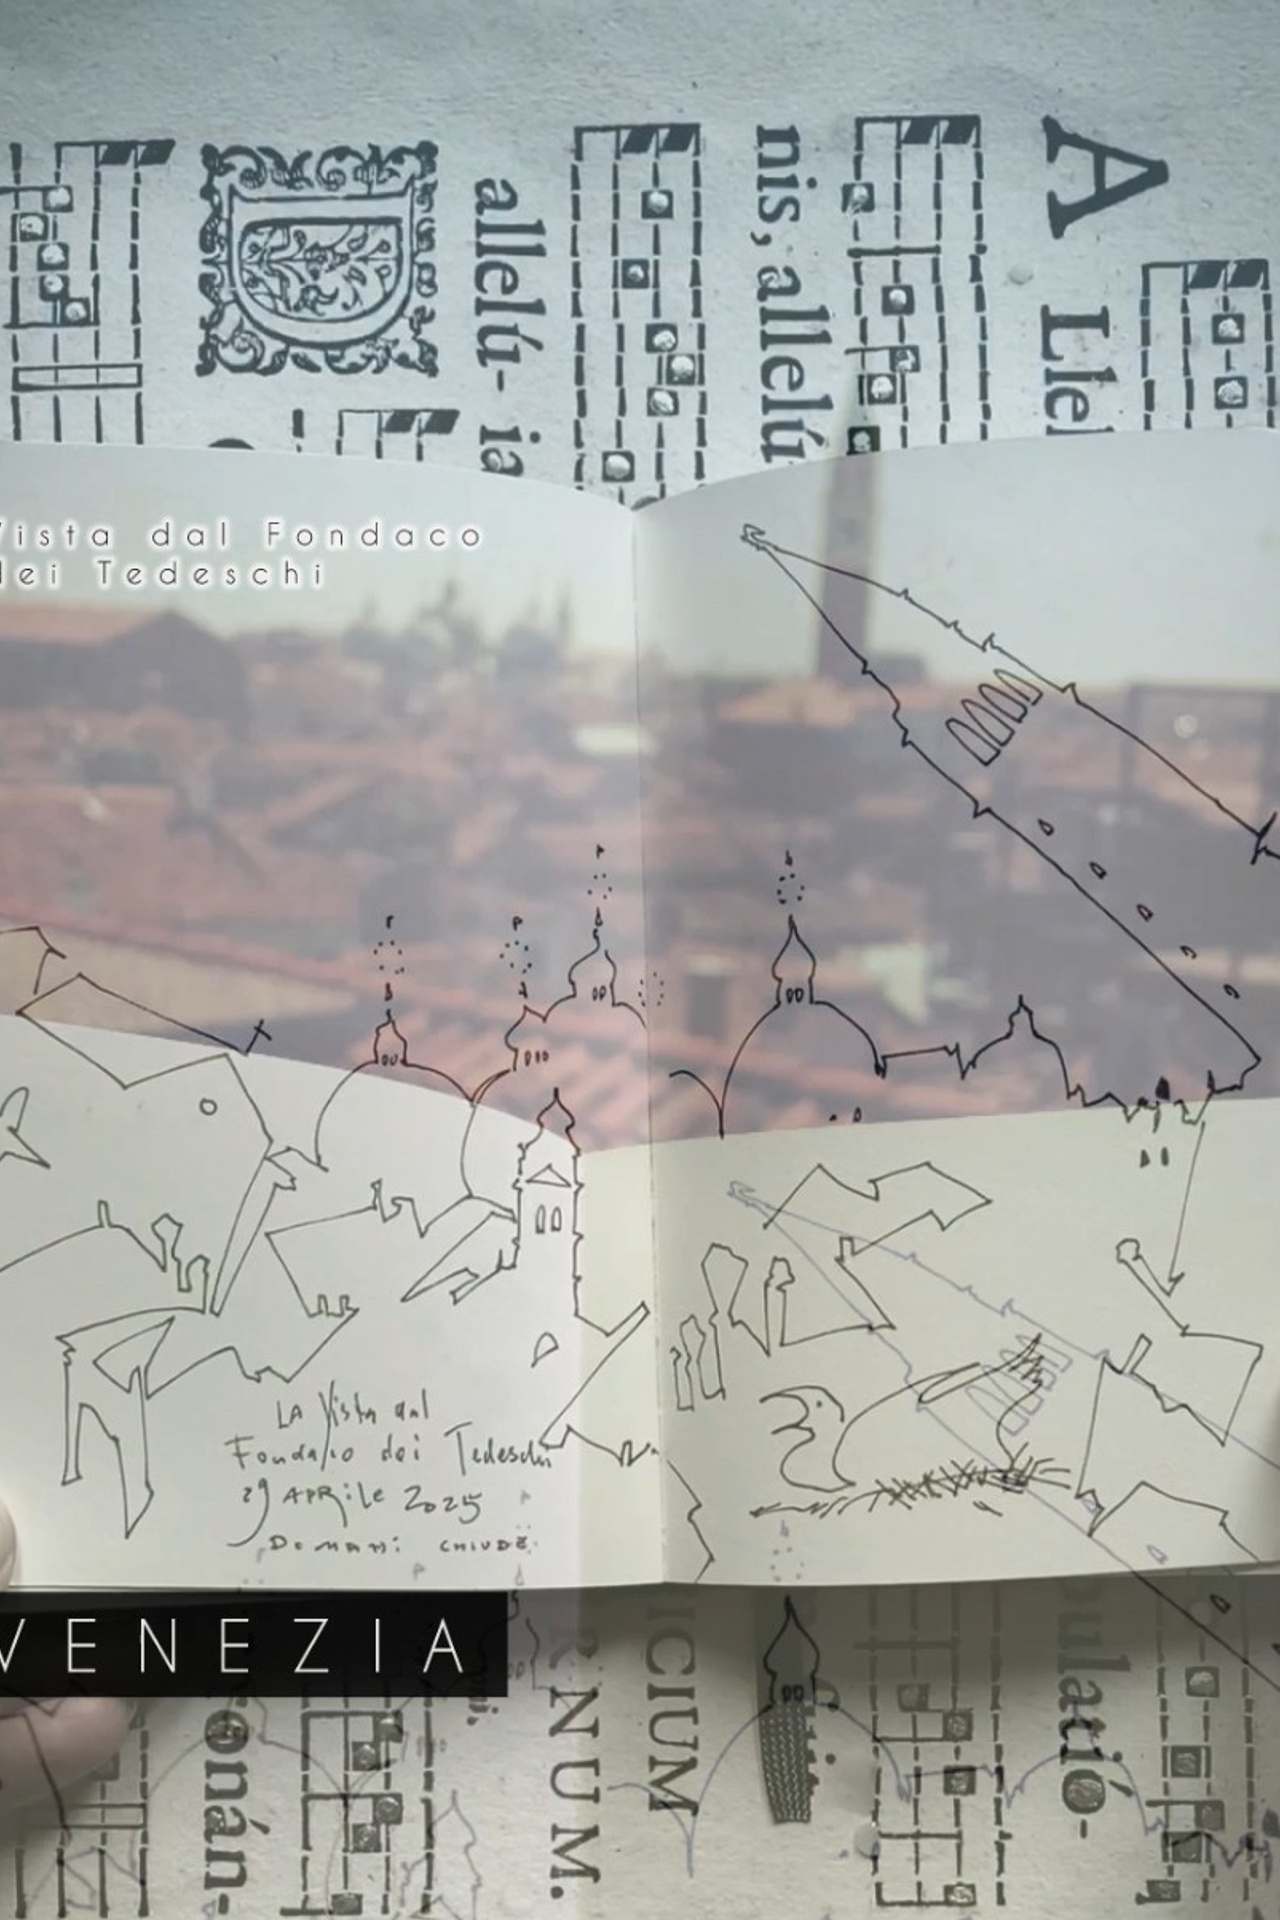 A Llel
nis, allelú
allelú- ia
Vista dal Fondaco
dei Tedeschi
LA Vista dal
Fondaco dei Tedeschi
29 APRile 2025
DOMANI CHIUDE
VENEZIA
onán-
RNUM.
ICIUM
pulatió-